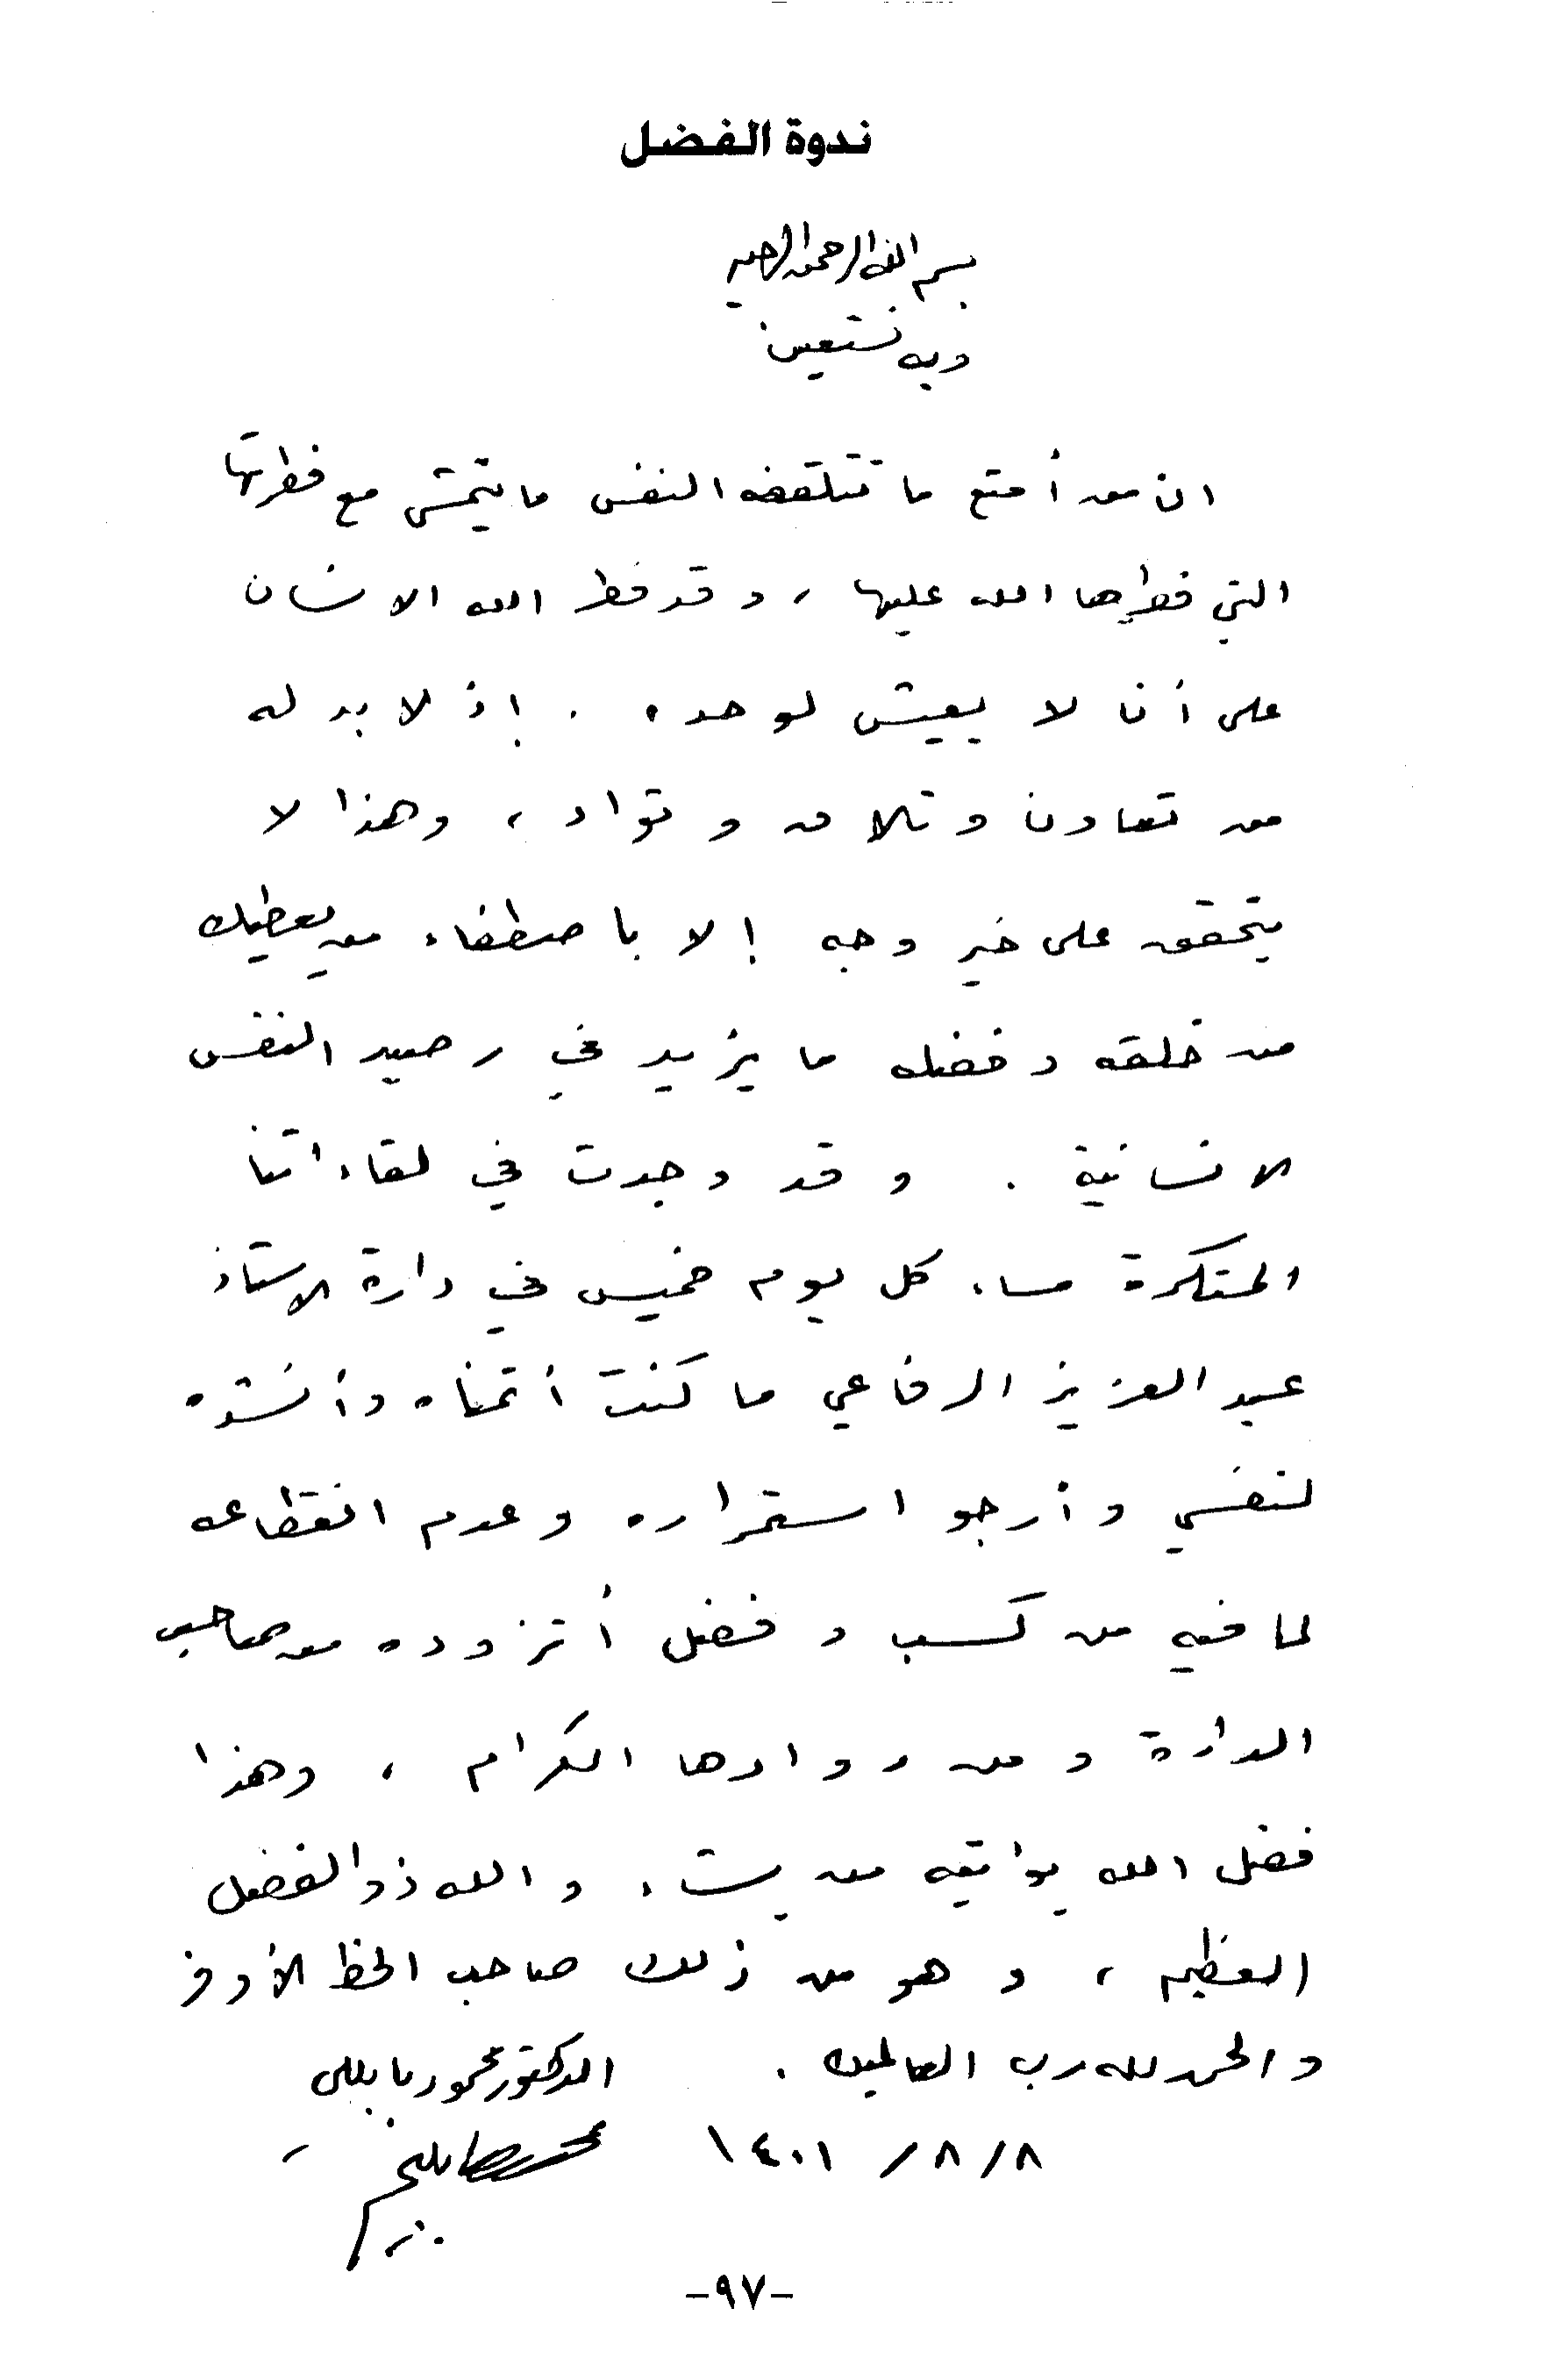 ندوة الفضل
بسم الله الرحمن الرحيم
وبه نستعين
ان من أمتع ما تتلقفه النفس ما يتمشى مع فطرتها
التي فطرها الله عليها ، وقد فطر الله الانسان
على أن لا يعيش لوحده . إذ لا بد له
من تعاون وتلاق وتواد ، وهذا لا
يتحقق على خير وجه إلا باصطفاء من يعطيك
من خلقه وفضله ما يزيد في رصيد النفس
الانسانية . وقد وجدت في لقاءاتنا
المتكررة مساء كل يوم خميس في دارة الاستاذ
عبد العزيز الرفاعي ما كنت أتمناه وأنشده
لنفسي وأرجو استمراره وعدم انقطاعه
لما فيه من كسب وفضل أتزوده من صاحب
الدارة ومن روادها الكرام ، وهذا
فضل الله يؤاتيه من يشاء والله ذو الفضل
العظيم ، وهو من ذلك صاحب الحظ الأوفر
والحمد لله رب العالمين . الدكتور محمود بابللي
٨/ ٨/ ١٤٠١
-٩٧-